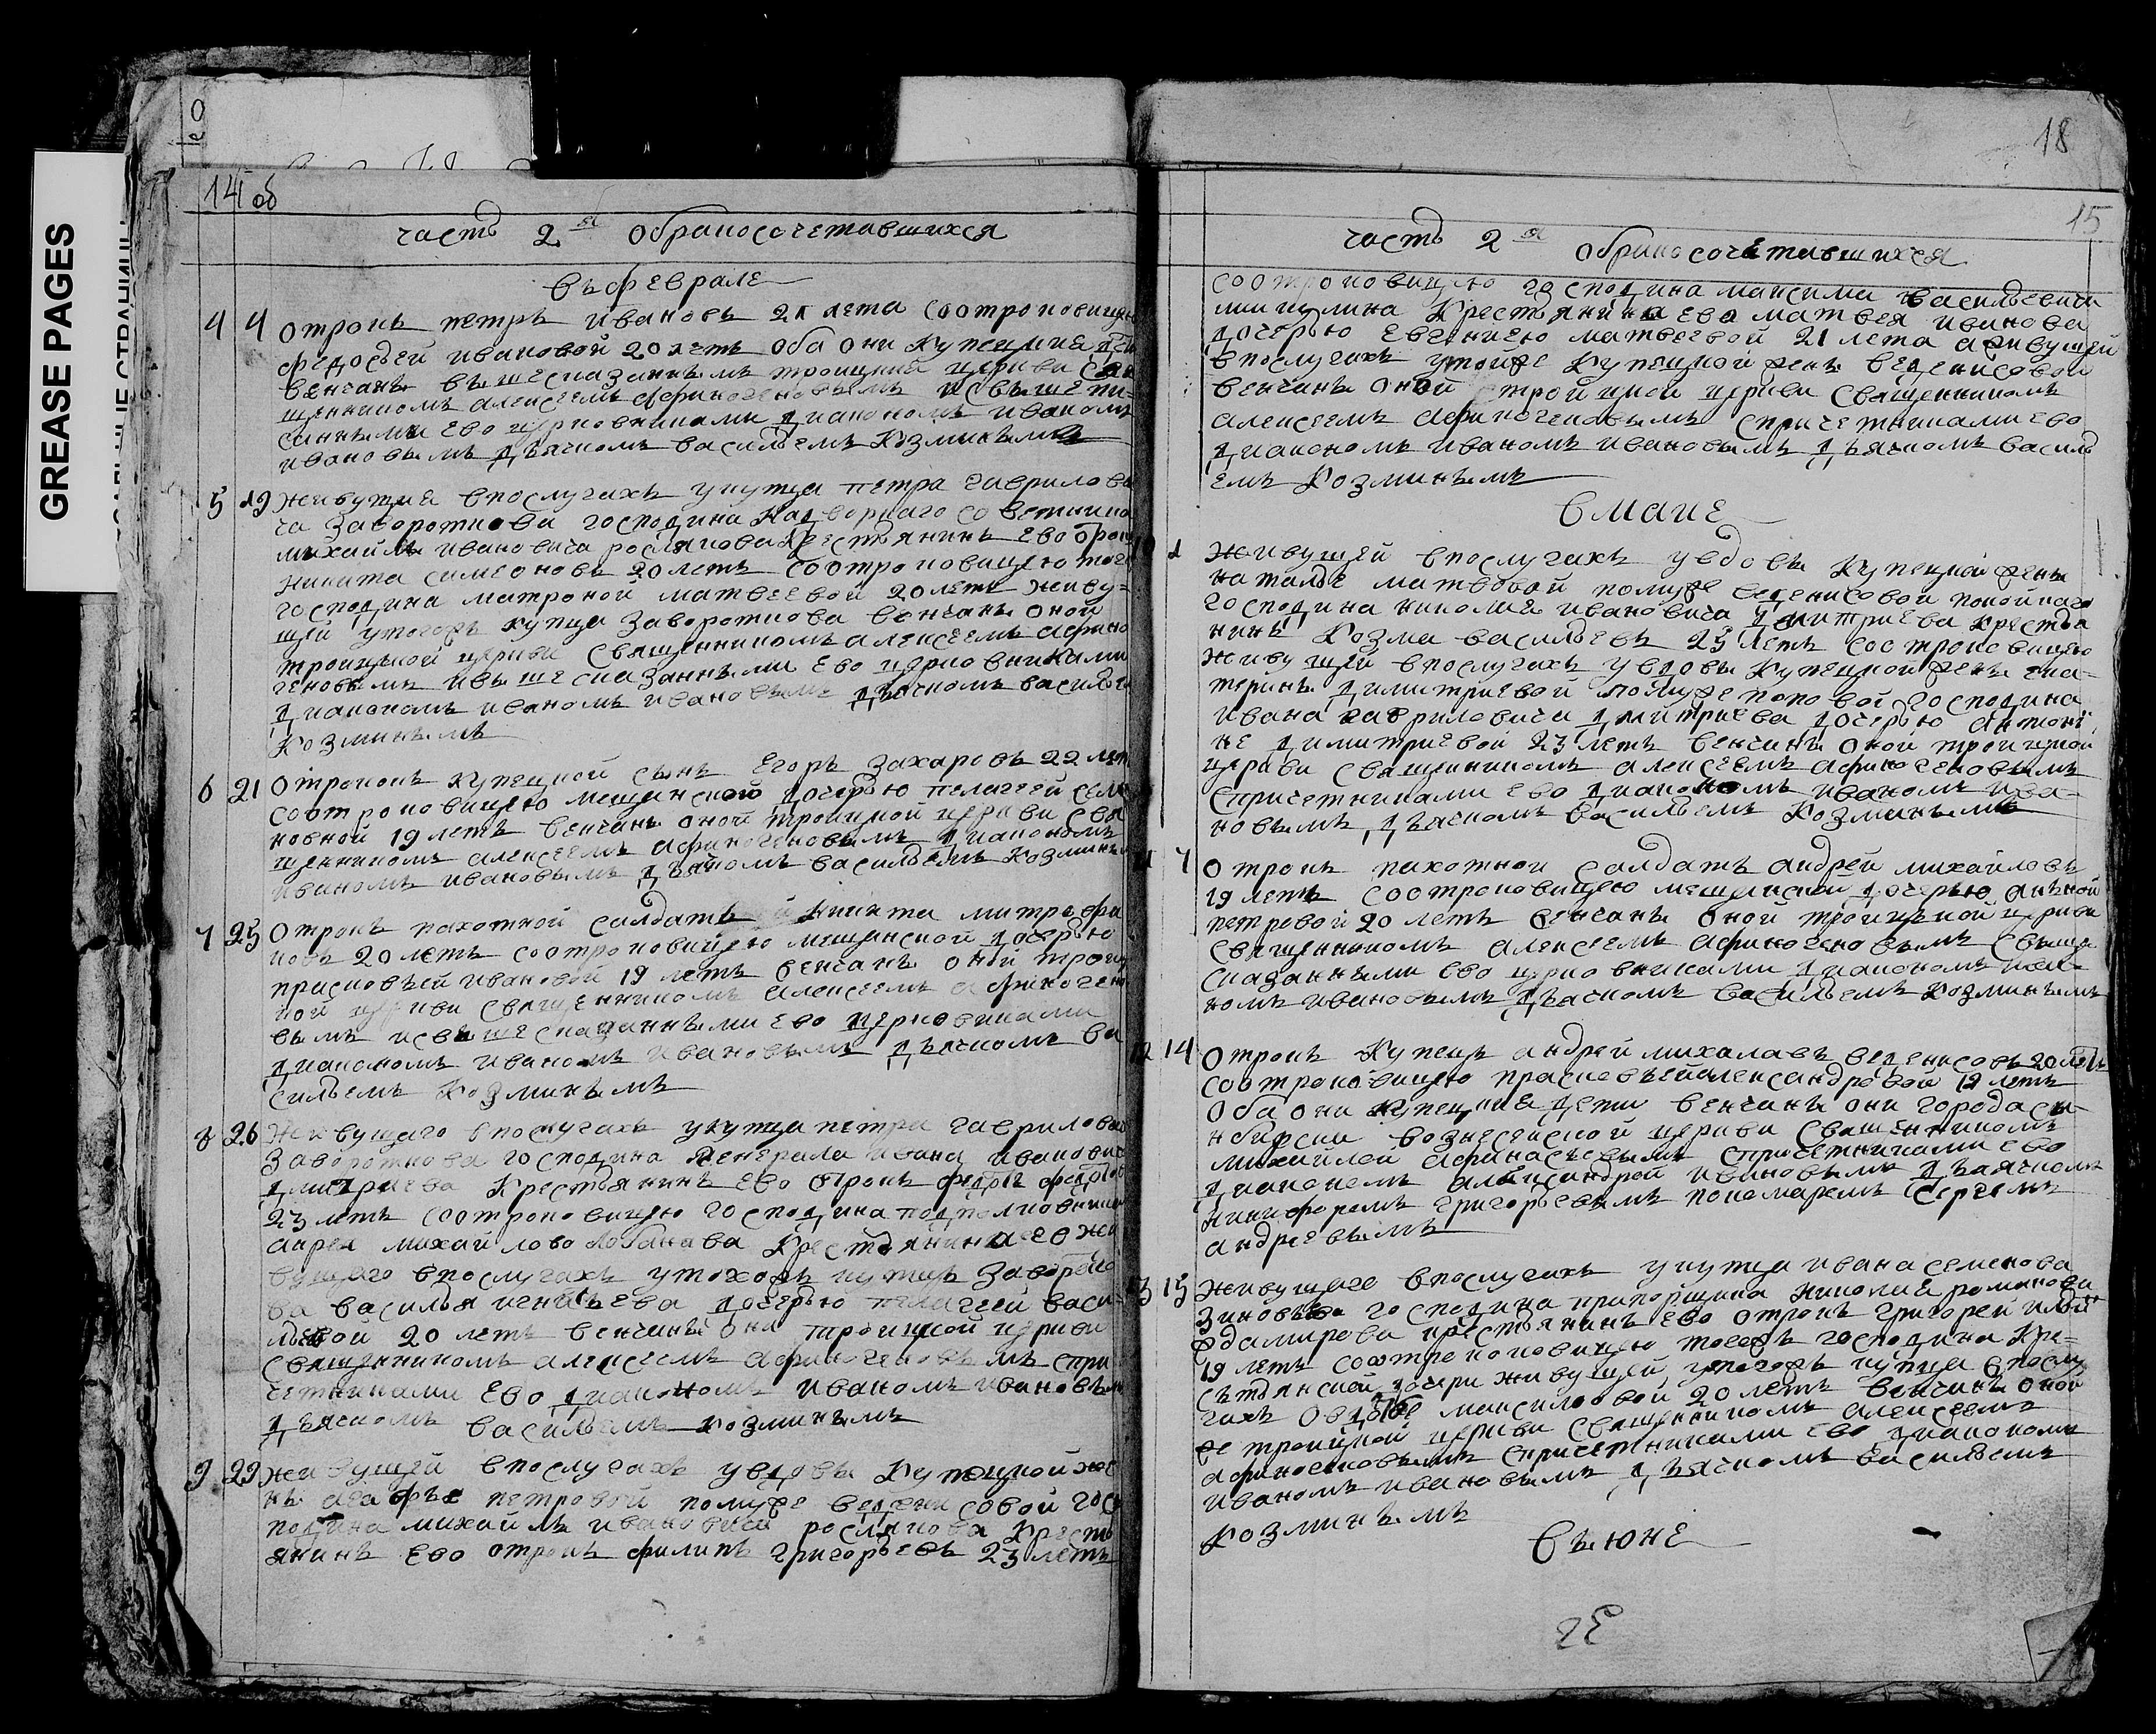 GREASE PAGES
14 об
часть 2я обракосочетавшихся
въ феврале
4 4 отрокъ петръ ивановъ 21 лета соотроковицею
федосьей ивановой 20 летъ оба они купецкие дети
венчанъ вышесказаннымъ троицкий церкви свя
щенникомъ алексеемъ афиногеновымъ
ево церковниками диакономъ иваномъ
ивановымъ дьячкомъ васильемъ козминымъ
5 19 живущие впослугахъ укупца петра гаврилови
ча завороткова господина надворнаго советника
михайлы ивановича рослякова крестьянинъ ево отрокъ
никита симеоновъ 20 летъ соотроковицею того
господина матроной матвеевой 20 летъ живу=
щей утогожъ купца завороткова венчанъ оной
троицкой церкви священникомъ алексеемъ афино
геновымъ ивышесказанными ево церковниками
диакономъ иваномъ ивановымъ дьячкомъ василье
козминымъ
6 21 отрокомъ купецкой сынъ егоръ захаровъ 22 лет
соотроковицею мещанской дочерью пелагеей семе
новной 19 летъ венчанъ оной троицкой церкви свя
щенникомъ алексеемъ афиногеновымъ диакономъ
иваномъ ивановымъ дьячкомъ васильемъ козминым
7 25 отрокъ пахотной салдатъ никита митрофа
новъ 20 летъ соотроковицею мещанской дочерью
прасковьей ивановой 19 летъ венчанъ оной трои
кой церкви священникомъ алексеемъ афиноген
вымъ исвышесказанными ево церковниками
диакономъ иваномъ ивановымъ дьячкомъ ва
сильемъ козминымъ
8 26 живущаго впослугахъ укупца петра гаврилова
заворотнова господина генерала ивана иванови
дмитриева крестьянинъ ево отрокъ федотъ федотов
23 летъ соотроковицею господина подполковника
михайлова лобанова крестьянина ево жи
вущаго впослугахъ утогожъ купца заворотко
ва василья игнатьева дочерью пелагеей васи
льевой 20 летъ венчанъ они троицкой церкви
священникомъ алексеемъ афиногеновымъ спри
четниками ево диакономъ иваномъ ивановым
дьячкомъ васильемъ козминымъ
9 29 живущей впослугахъ увдовы купецкой же
ны агафье петровой помуже веденисовой гос
подина михайлы ивановича рослякова кресть
янинъ ево отрокъ филипъ григорьевъ 23 летъ
18
15
часть 2я обракосочетавшихся
соотроковицею господина максима васильевича
крестьянина ево матвея иванова
дочерью евгениею матвеевой 21 лета аживущей
впослугахъ утойже купецкой жены веденисовой
венчанъ оной троицкой церкви священникомъ
алексеемъ афиногеновымъ спричетниками ево
диакономъ иваномъ ивановымъ дьячкомъ василь
емъ козминымъ
вмаие
живущей впослугахъ увдовы купецкой жены
наталье матвевой помуже веденисовой покойнаго
господина николая ивановича дмитриева крестья
нинъ козма васильевъ 25 летъ соотроковицею
живущей впослугахъ увдовы купецкой жены ека=
терины димитриевой помуже поповой господина
ивана гавриловича дмитриева дочерью антони
не димитриевой 23 летъ венчанъ оной троицкой
церкви священникомъ алексеемъ афиногеновымъ
спричетниками ево диакономъ иваномъ ива=
новымъ дьячкомъ васильемъ козминымъ
11 7 отрокъ пахотной салдатъ андрей михайловъ
19 летъ соотроковицею мещанской дочерью анъной
петровой 20 летъ венчанъ оной троицкой церкви
священникомъ алексеемъ афиногеновымъ свыше
сказанными ево церковниками диакономъ ива=
номъ ивановымъ дьячкомъ васильемъ козминымъ
12 14 отрокъ купецъ андрей михалавъ веденисовъ 20 летъ
соотроковицею прасковьейалександровой 19 летъ
оба они купецкие дети венчанъ они города си
нбирска вознесенской церкви священникомъ
михайлой афанасьевымъ спричетниками ево
диакономъ александрой ивановымъ дьячкомъ
никифоромъ григорьевымъ пономаремъ сергеемъ
андреевымъ
13 15 живущаго впослугахъ укупца ивана семенова
зиновьева господина прапорщика николая романова
крестьянинъ ево отрокъ григорей ильи
19 летъ соотроковицею тогожъ господина кре=
стьянской дочери живущей утогожъ купца впослу
гахъ авдотье максимовой 20 летъ венчанъ оной
же троицкой церкви священникомъ алексеемъ
афиногеновымъ спричетниками ево диакономъ
иваномъ ивановымъ дьячкомъ васильемъ
козминымъ
въ июне